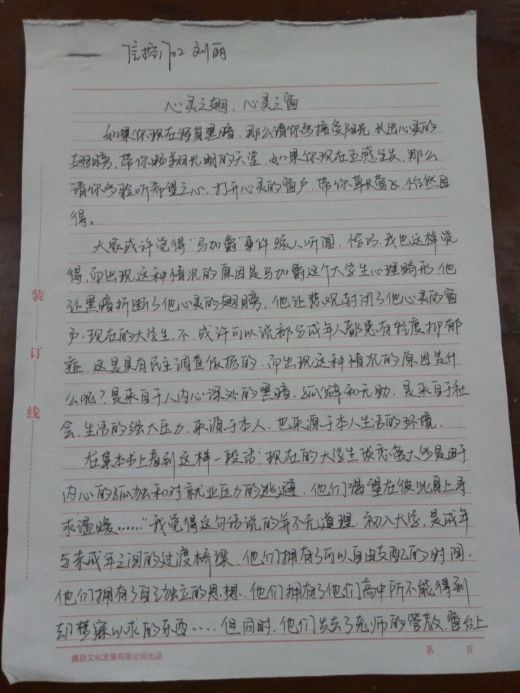 信控1702 刘丽
心灵之翅，心灵之窗
如果你现在浑身黑暗，那么请你拥偎阳光，长出心灵的
翅膀，带你翱翔光明的天堂，如果你现在五感尽失，那么
请你聆听希望之心，打开心灵的窗户，带你草长莺飞，怡然自
得。
大家或许觉得“马加爵”事件骇人听闻，恰巧，我也这样觉
得，而出现这种情况的原因是马加爵这个大学生心理畸形，他
让黑暗折断了他心灵的翅膀，他让悲观封闭了他心灵的窗
户，现在的大学生，不，或许可以说部分成年人都患有轻度抑郁
症，这是具有民主调查依据的，而出现这种情况的原因是什
么呢？是来自于人内心深处的黑暗，孤僻和无助，是来自于社
会，生活的强大压力，来源于本人，也来源于本人生活的环境。
在某本书上看到这样一段话“现在的大学生谈恋爱大多是由于
内心的孤独和对就业压力的逃避，他们渴望在彼此身上寻
求温暖……”我觉得这句话说的并不无道理，初入大学，是成年
与未成年之间的过渡桥梁，他们拥有了可以自由支配的时间，
他们拥有了自己独立的思想，他们拥有了他们高中所不能得到
却梦寐以求的东西……但同时，他们失去了老师的管教，窗台上
装
订
线
鑫宏文化发展有限公司出品
第 页